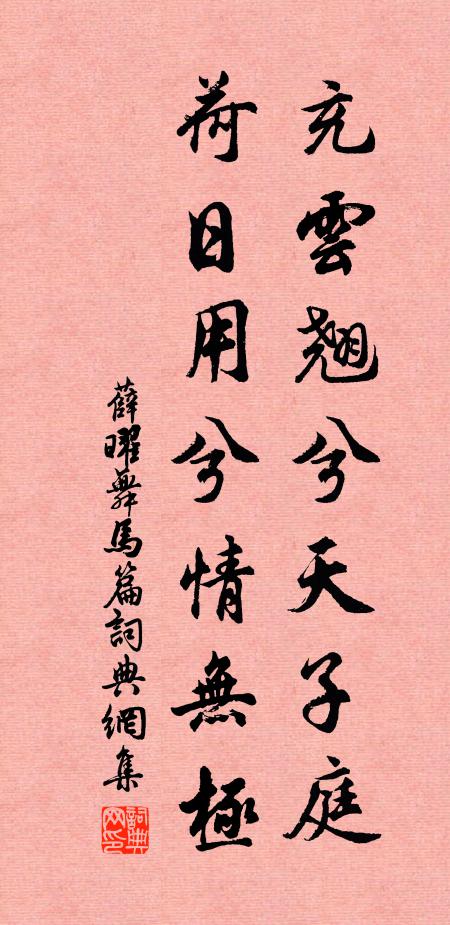 充雲翹兮天子庭
荷日用兮情無極
薛曜舞馬篇詞典網集
詞典网印